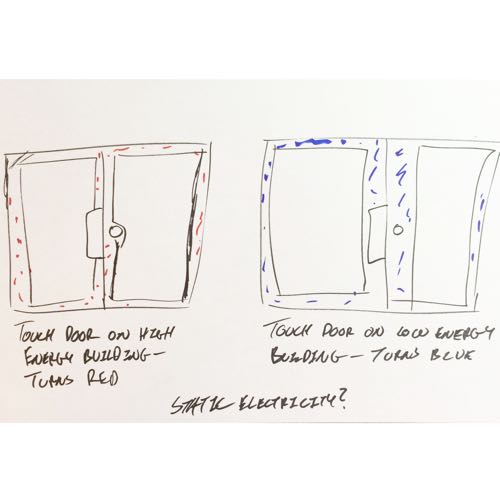 TOUCH DOOR ON HIGH
ENERGY BUILDING—
TURNS RED
TOUCH DOOR ON LOW ENERGY
BUILDING— TURNS BLUE
STATIC ELECTRICITY?